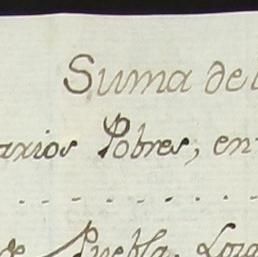 Suma de
arios Pobres, en
de Puebla,